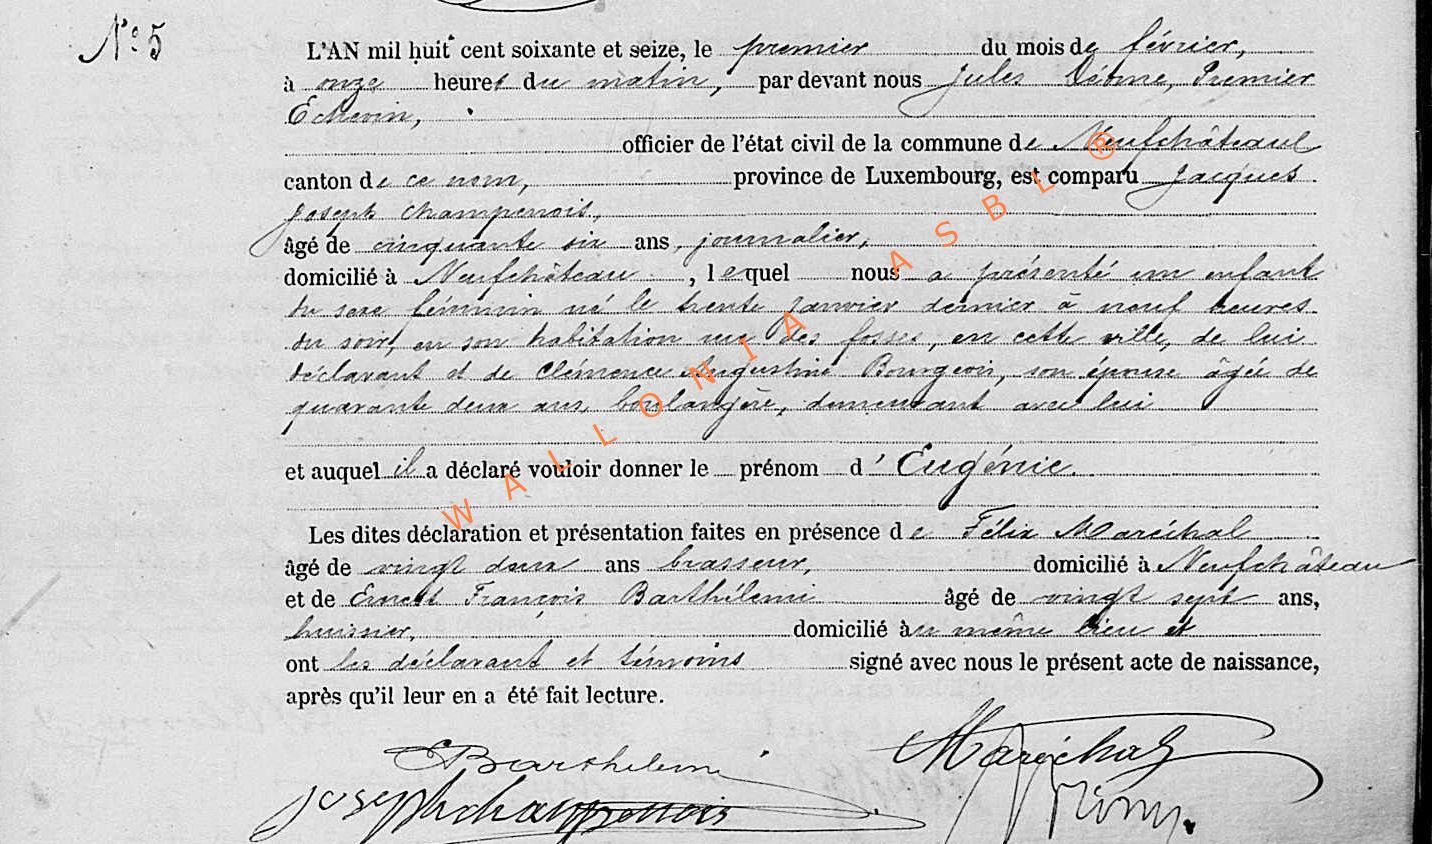 N° 5
L'AN mil huit cent soixante et seize, le premier du mois de février,
à onze heures du matin, par devant nous Jules Léome, Premier
Echevin,
officier de l'état civil de la commune de Neufchâteau
canton de ce nom, province de Luxembourg, est comparu Jacques
Joseph Champenois,
âgé de cinquante six ans, journalier,
domicilié à Neufchâteau, lequel nous a présenté un enfant
du sexe féminin né le trente janvier dernier à neuf heures
du soir, en son habitation rue des fosses, en cette ville, de lui
déclarant et de Clémence Augustine Bourgeois, son épouse âgée de
quarante deux ans, boulangère, demeurant avec lui
et auquel il a déclaré vouloir donner le prénom d'Eugénie.
Les dites déclaration et présentation faites en présence de Félix Maréchal
âgé de vingt deux ans brasseur, domicilié à Neufchâteau
et de Ernest François Barthélemi âgé de vingt sept ans,
huissier, domicilié au même lieu et
ont les déclarant et témoins signé avec nous le présent acte de naissance,
après qu'il leur en a été fait lecture.
EBarthelemi Maréchal
joseph champenois
WALLONIA ASBL ®